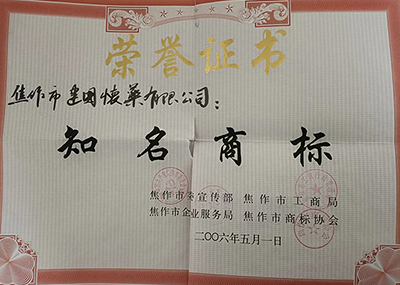 荣誉证书
焦作市建国怀药有限公司：
知名商标
焦作市委宣传部 焦作市工商局
焦作市企业服务局 焦作市商标协会
二〇〇六年五月一日